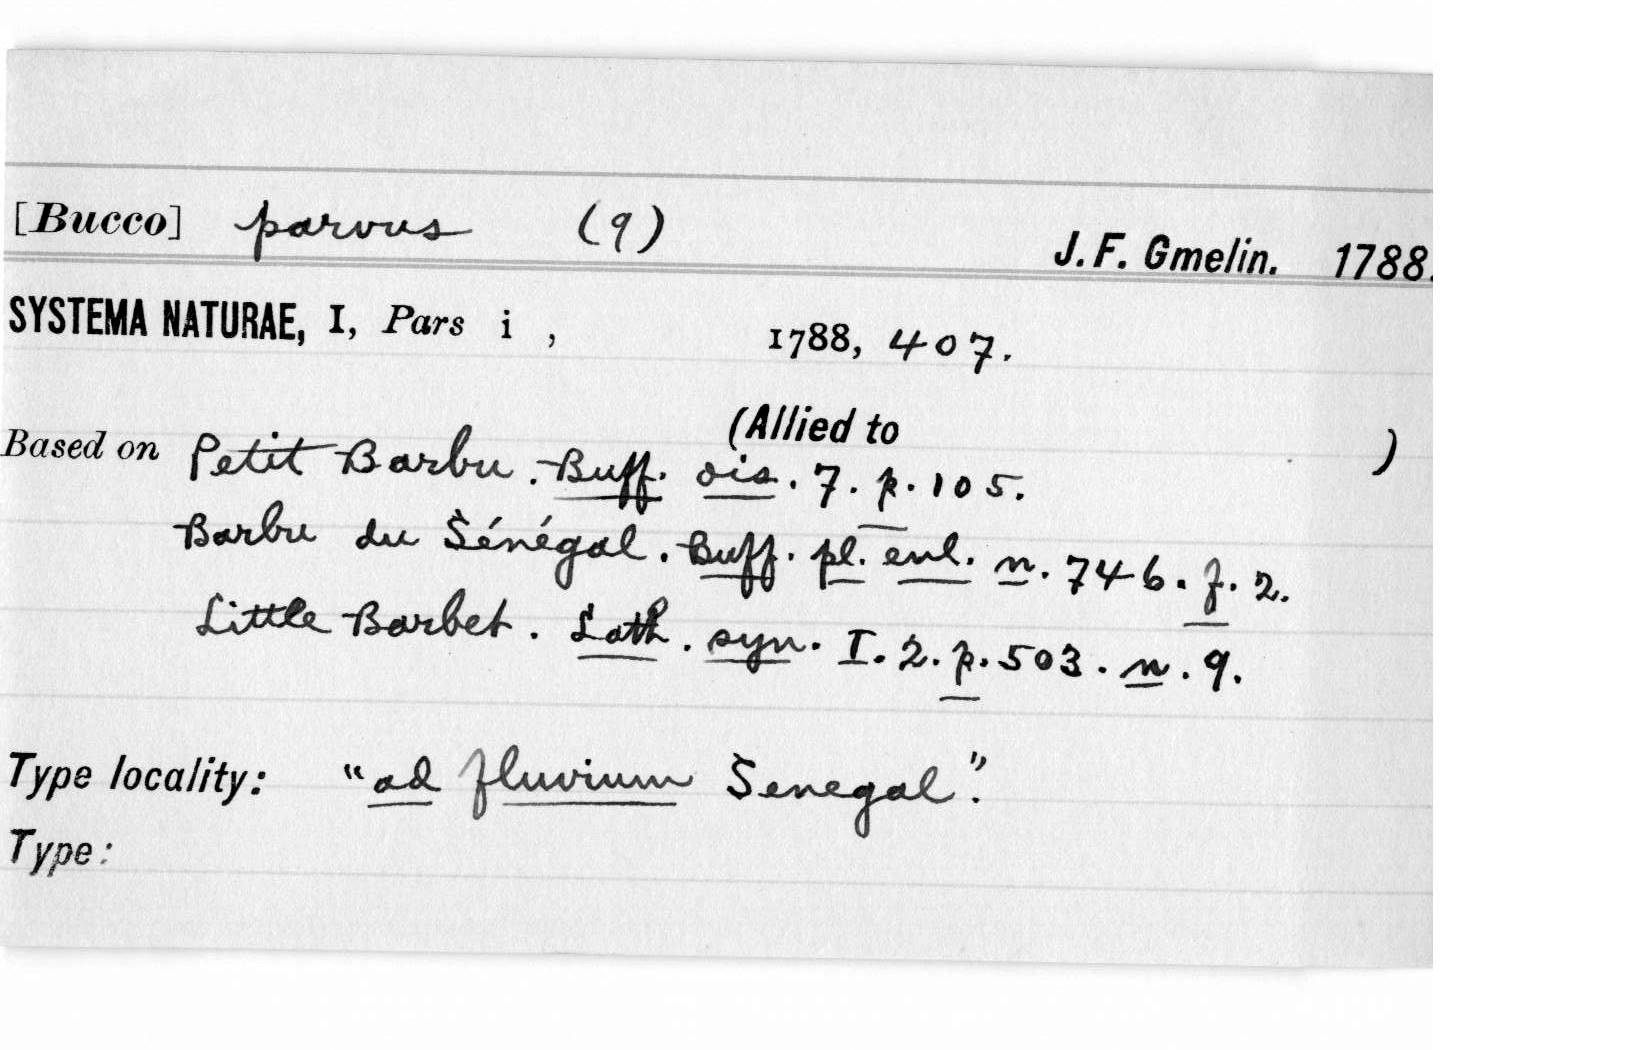 [Bucco] parvus (9)
J. F. Gmelin. 1788.
SYSTEMA NATURAE, I, Pars i , 1788, 407.
(Allied to )
Based on Petit Barbu. Buff. ois. 7. p. 105.
Barbu du Sénégal. Buff. pl. enl. n. 746. f. 2.
Little Barbet. Lath. syn. I. 2. p. 503. n. 9.
Type locality: "ad fluvium Senegal".
Type: